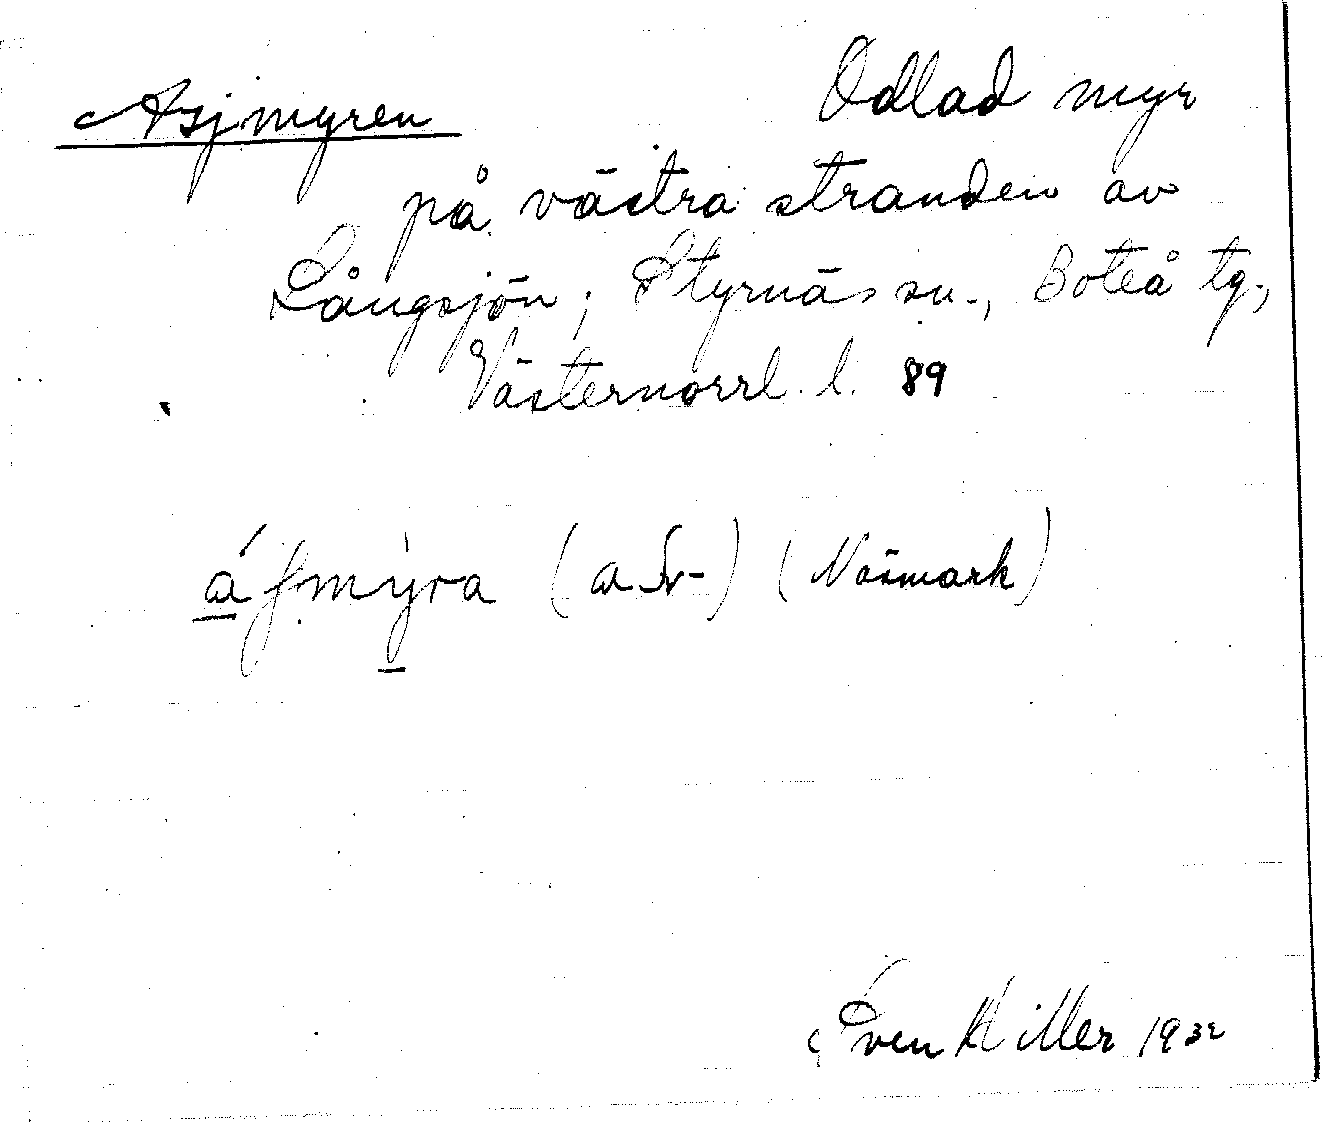 Asjmyren Odlad myr
på västra stranden av
Långsjön, Styrnäs sn., Boteå tg.,
Västernorrl. l. 89
(Näsmark)
Sven Hiller 1932